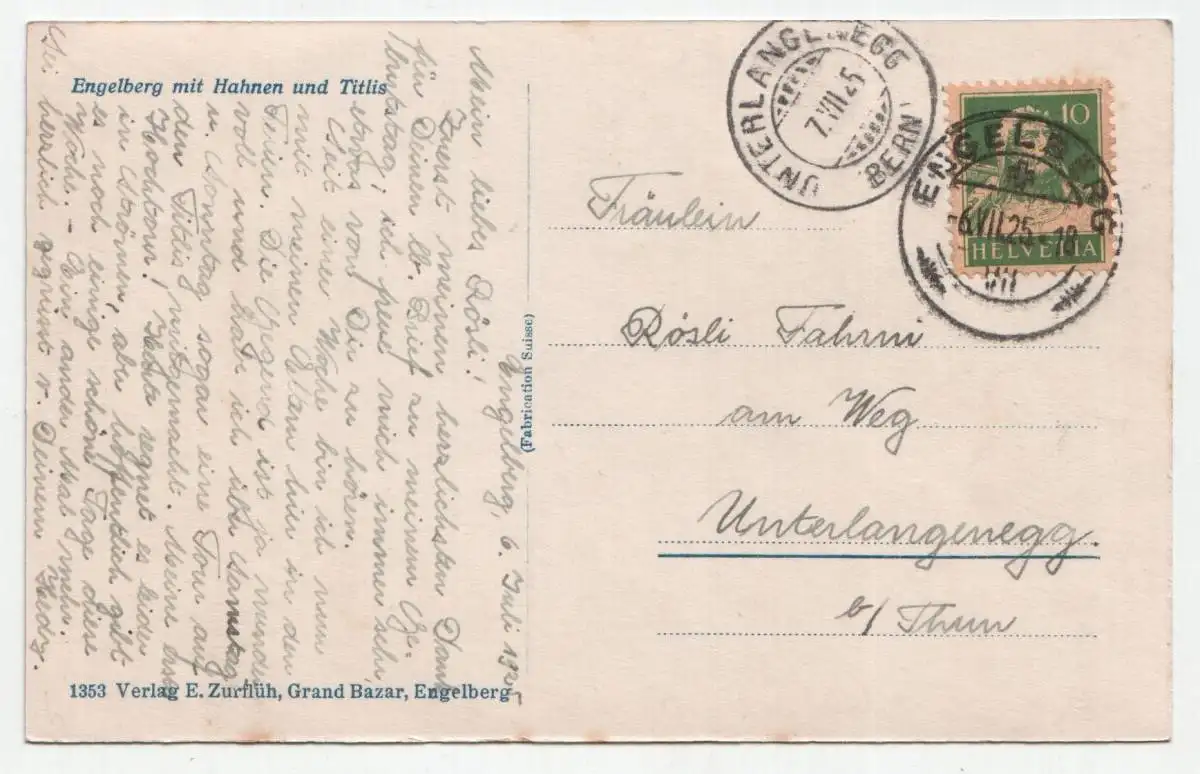 Engelberg mit Hahnen und Titlis
Engelberg, 6. Juli 192
Mein liebes Rösli!
Zuerst meinen herzlichsten Dank
für Deinen lb. Brief zu meinem Ge-
burtstag; ich freue mich immer sehr,
etwas von Dir zu hören.
Seit einer Woche bin ich nun
mit meinen Eltern hier in den
Ferien. Die Gegend ist ja wunder-
voll und habe ich letzten Samstag
u. Sonntag sogar eine Tour auf
den Titlis mitgemacht. Meine erste
Hochtour! Heute regnet es leider
in Strömen, aber hoffentlich gibt
es noch einige schöne Tage diese
Woche. - Ein ander Mal mehr.
Sei
herzlich gegrüsst v. Deinem Hedy.
1353 Verlag E. Zurflüh, Grand Bazar, Engelberg
(Fabrication Suisse)
UNTERLANGENEGG
7.VII.25
BERN
10
HELVETIA
ENGELBERG
6.VII.25-18
VII
Fräulein
Rösli Fahrni
am Weg
Unterlangenegg.
b/ Thun